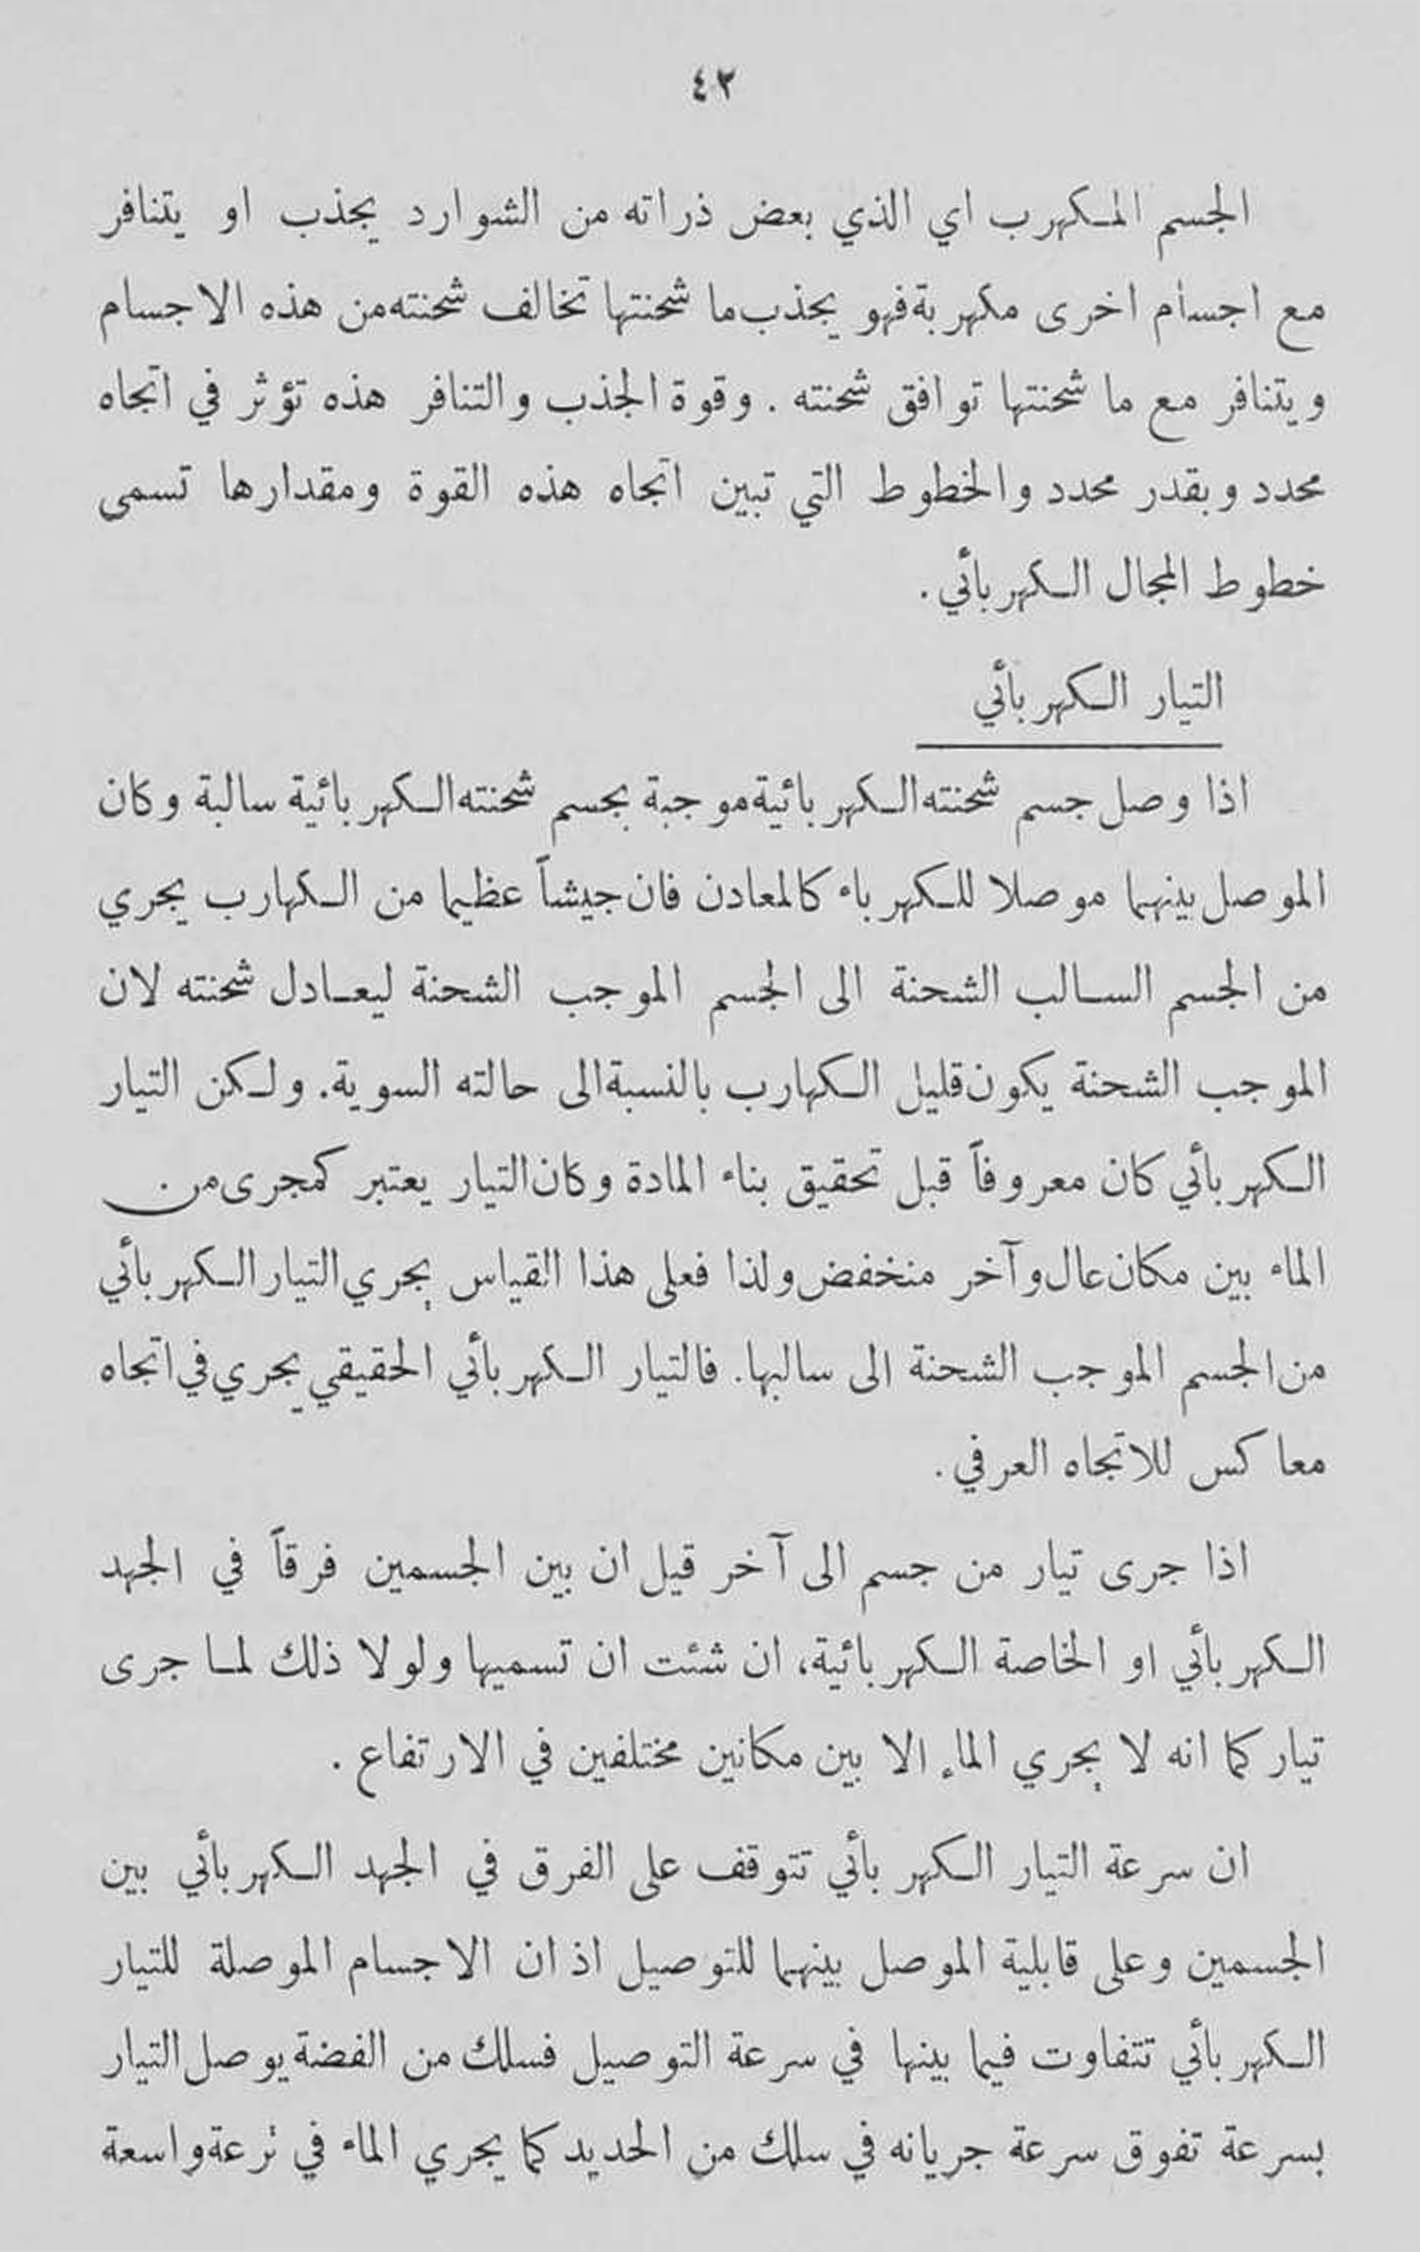 ٤٢
الجسم المكهرب اي الذي بعض ذراته من الشوارد يجذب او يتنافر
مع اجسام اخرى مكهربة فهو يجذب ما شحنتها تخالف شحنته من هذه الاجسام
ويتنافر مع ما شحنتها توافق شحنته . وقوة الجذب والتنافر هذه تؤثر في اتجاه
محدد وبقدر محدد والخطوط التي تبين اتجاه هذه القوة ومقدارها تسمى
خطوط المجال الكهربائي .
التيار الكهربائي
اذا وصل جسم شحنته الكهربائية موجبة بجسم شحنته الكهربائية سالبة وكان
الموصل بينهما موصلا للكهرباء كالمعادن فان جيشاً عظيما من الكهارب يجري
من الجسم السالب الشحنة الى الجسم الموجب الشحنة ليعادل شحنته لان
الموجب الشحنة يكون قليل الكهارب بالنسبة الى حالته السوية. ولكن التيار
الكهربائي كان معروفاً قبل تحقيق بناء المادة وكان التيار يعتبر كمجرى من
الماء بين مكان عال وآخر منخفض ولذا فعلى هذا القياس يجري التيار الكهربائي
من الجسم الموجب الشحنة الى سالبها. فالتيار الكهربائي الحقيقي يجري في اتجاه
معاكس للاتجاه العرفي .
اذا جرى تيار من جسم الى آخر قيل ان بين الجسمين فرقاً في الجهد
الكهربائي او الخاصة الكهربائية، ان شئت ان تسميها ولولا ذلك لما جرى
تيار كما انه لا يجري الماء الا بين مكانين مختلفين في الارتفاع .
ان سرعة التيار الكهربائي تتوقف على الفرق في الجهد الكهربائي بين
الجسمين وعلى قابلية الموصل بينهما للتوصيل اذ ان الاجسام الموصلة للتيار
الكهربائي تتفاوت فيما بينها في سرعة التوصيل فسلك من الفضة يوصل التيار
بسرعة تفوق سرعة جريانه في سلك من الحديد كما يجري الماء في ترعة واسعة